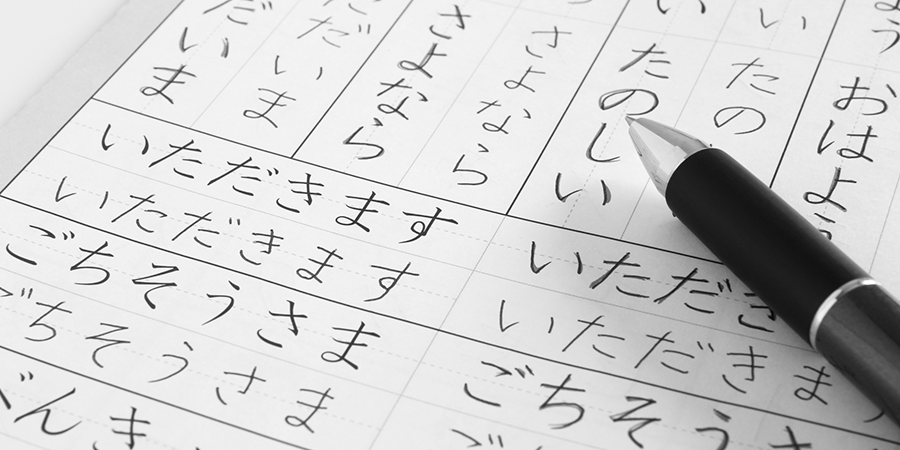 おはよう
い
たの
い
たのしい
さよなら
さよなら
だいま
だいま
いただきます
いただきます
ごちそうさま
ごちそうさま
べんき
いただき
いただきま
ごちそうさ